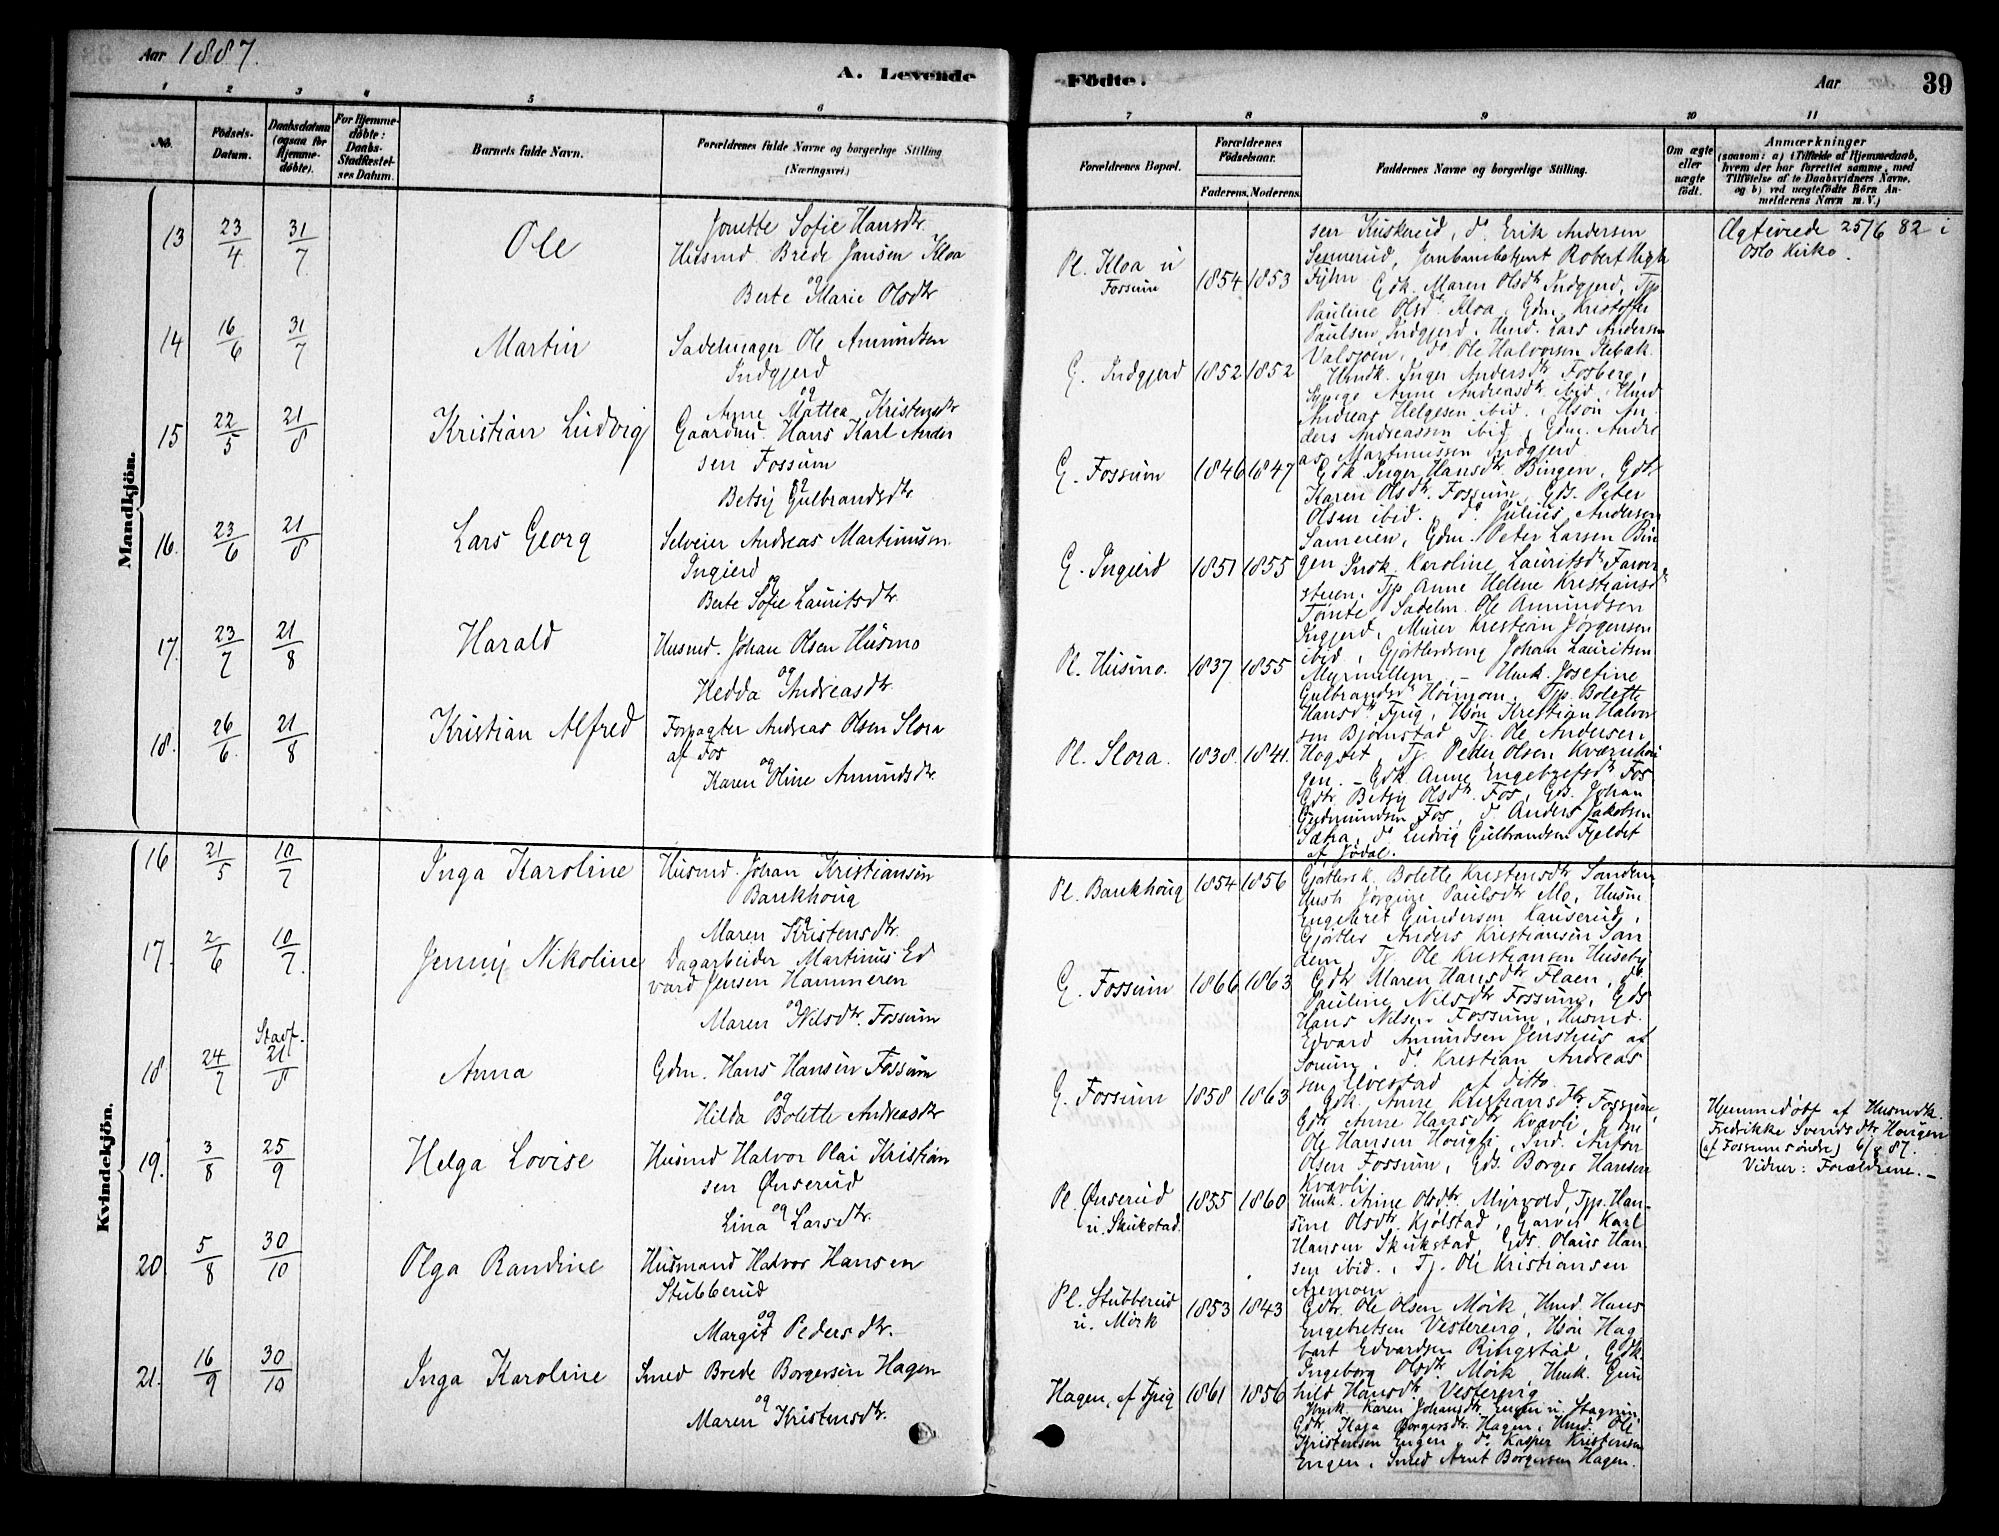 Aar 1887.
A. Levende
1 2 3 4 5 6
No.
Fødsels-Datum.
Daabsdatum (ogsaa for Hjemme-døbte).
For Hjemme-døbte: Daabs-Stadfæstel-ses Datum.
Barnets fulde Navn.
Forældrenes fulde Navne og borgerlige Stilling
(Næringsvei)
Mandkjön.
Jonette Sofie Hansdtr.
13 23/4 31/7 Ole Husmd. Brede Jansen Kloa
og
Berte Marie Olsdtr
14 16/6 31/7 Martin Sadelmager Ole Amundsen
Indgjerd
og
Anne Mattea Kristensdtr
15 22/5 21/8 Kristian Ludvig Gaardmd. Hans Karl Ander
sen Fossum
og
Betsy Gulbrandsdtr
16. 23/6 21/8 Lars Georg Selveier Andreas Martinusen
Ingierd
og
Berte Sofie Lauritsdtr
17. 23/7 21/8 Harald Husmd. Johan Olsen Husmo
og
Hedda Andreasdtr
18. 26/6. 21/8 Kristian Alfred Forpagter Andreas Olsen Slora
af Fos
og
Karen Oline Amundsdtr.
Kvindekjön.
16 21/5 10/7 Inga Karoline Husmd. Johan Kristiansen
Baukhoug
og
Maren Kristensdtr.
17. 2/6 10/7. Jenny Nikoline Dagarbeider Martinus Ed
vard Jensen Hammeren
og
Maren Nilsdtr. Fossum
Stadf.
18 24/7 21/8 Anna Gdm. Hans Hansen Fossum
og
Hilda Bolette Andreasdtr
19. 3/8 25/9 Helga Lovise Husmd Halvor Olai Kristian
sen Ønserud
og
Lina Larsdtr.
20 5/8 30/10 Olga Randine Husmand Halvor Hansen
Stubberud
og
Margit Pedersdtr.
21. 16/9 30/10 Inga Karoline Smed Brede Borgersen Hagen
og
Maren Kristensdtr.
Fødte.
Aar
39
7 8 9 10 11
Forældrenes Bopæl.
Forældrenes Fødselsaar.
Faderens. Moderens.
Faddernes Navne og borgerlige Stilling.
Om ægte eller uægte født.
Anmærkninger
(saasom: a) i Tilfælde af Hjemmedaab,
hvem der har forrettet samme, med
Tilføielse af to Daabsvidners Navne,
og b) ved uægtefødte Börn An-
melderens Navn m. V.)
Pl. Kloa u
Fossum
1854 1853
G. Indgjerd 1852 1852
G. Fossum 1846 1847
G. Ingierd 1851 1855
Pl. Husmo. 1837 1855
Pl. Slora. 1838. 1841.
Pl. Baukhoug 1854 1856
G. Fossum 1866 1863
G. Fossum 1858 1863
Pl. Ønserud
u. Skukstad.
1855 1860
Pl. Stubberud
u. Mørk
1853 1843
Hagen, af Tjuig 1861 1856
Erik Andersen
Gdk. Maren Olsdtr Indgjerd, Tjp.
Pauline Olsdtr Kloa, Gdm. Kristoffer
Paulsen Indgjerd, Hmd. Lars Andersen
Valsjøen, do Ole Halvorsen
Hmdk. Inger Andersdtr Fosberg,
Anne Andreasdtr ibid, Hmd
Andreas Helgesen ibid, Hsøn An
ders Andreassen ibid, Gdm. Andre
as Martinussen Indgjerd
Gdk. Inger Hansdtr Bingen, Gdtr.
Karen Olsdtr. Fossum, Gds. Peter
Olsen ibid. do Julius Andersen
Sameien, Gdm. Peter Larsen Bin
gen Indk. Karoline Lauritsdtr Farver
stuen, Tjp. Anne Helene Kristiansdtr
Tomte, Sadelm. Ole Amundsen
Ingjerd, Murer Kristian Jørgensen
ibid, Gjøtlerdreng Johan Lauritsen
Hmk. Josefine
Gulbrandsdtr Hoimoen, Tjp. Bolette
Hansdtr Tjuig, Hsøn Kristian Halvor
sen Bjørnstad Tj. Ole Andersen,
Hogset Tj. Peder Olsen Kværnhou
gen. – Gdk Anne Engebretsdtr Fos
Gdtr. Betsy Olsdtr. Fos, Gds. Johan
Gudmundsen Fos, do Anders Jakobsen
Sætra, do Ludvig Gulbrandsen Fjeldet
af Jødal.
Bolette Kristensdtr Sanden,
Jørgine Paulsdtr Mo, Husm
Engebret Gundersen Kauserud,
Anders Kristiansen San
dem, Tj. Ole Kristiansen Huseby
Gdtr Maren Hansdtr Flaen, do
Pauline Nilsdtr Fossum, Gds
Hans Nilsen Fossum, Husmd.
Edvard Amundsen Jenshus af
Sørum, do Kristian Andreas
sen Ulvestad af ditto.
Gdk. Anne Kristiansdtr Fossum,
Gdtr Anne Hansdtr Kvavli,
Ole Hansen Hougli, Ind. Anton
Olsen Fossum, Gds. Borger Hansen
Kvavli
Hmk. Anne Olsdtr. Myrvold, Tjp. Han-
sine Olsdtr. Kjølstad, Garver Karl
Hansen Skukstad, Gds. Olaus Han
sen ibid., Tj. Ole Kristiansen
Gdtr. Ole Olsen Mørk, Hmd. Hans
Engebretsen Vestereng, Hsøn Hag
bart Edvardsen Ringstad, Gdk.
Ingeborg Olsdtr. Mørk, Hmk. Gun
hild Hansdtr. Vestereng
Hmk. Karen Johansdtr. Engen u. Stagrim,
Gdtr. Kaja Borgersdtr. Hagen, Hmd. Ole
Kristensen Engen, do Kasper Kristensen
Engen, Smed Arnt Borgersen Hagen.
Ægteviede 25/6 82 i
Oslo Kirke.
Hjemmedøbt af Husmdk.
Fredrikke Svendsdtr Hougen
(af Fossum søndre) 6/8 87.
Vidner: Forældrene. –